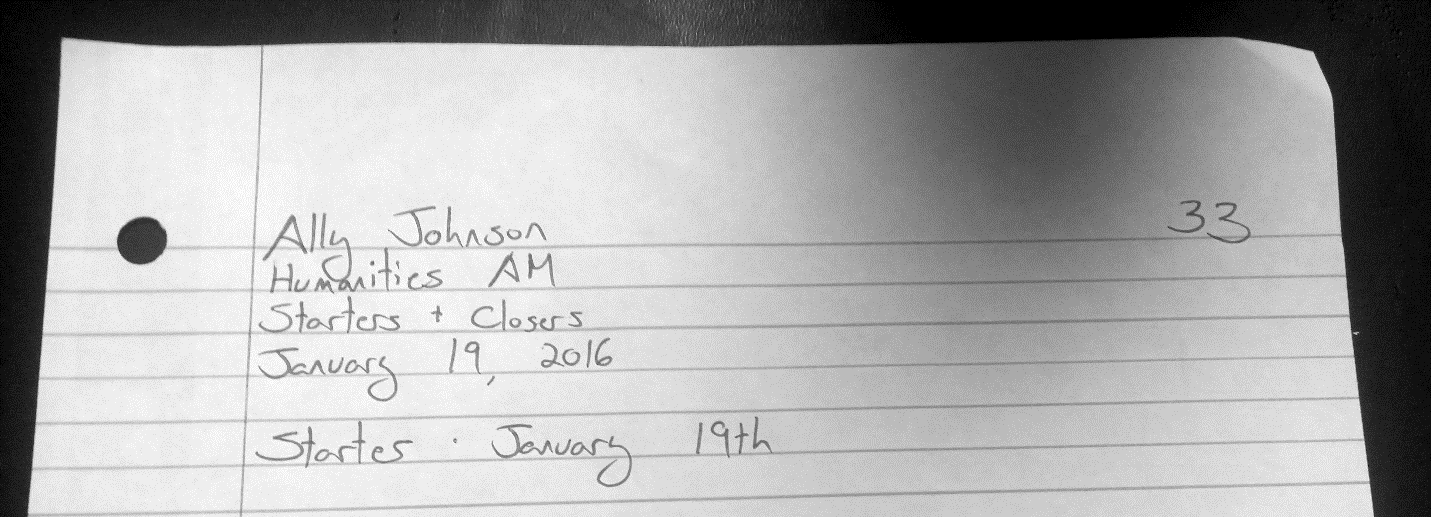 Ally Johnson 33
Humanities AM
Starters + Closers
January 19, 2016
Starter · January 19th